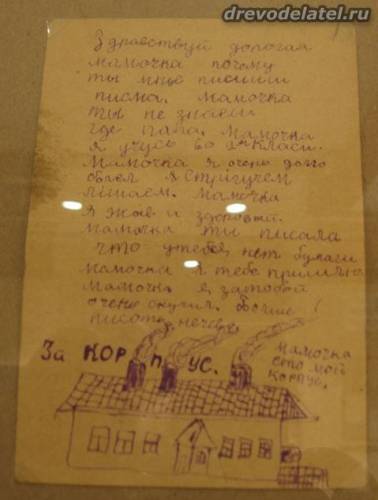 drevodelatel.ru
Здравствуй дорогая
мамочка почему
ты мне пишиш
писма. мамочка
ты не знаеш
где папа. Мамочка
я учусь во 2м класи.
Мамочка я очень долго
болел Стригучем
лишаем. Мамочка
я жив и здоровый.
мамочка ты писала
что у тебя нет бумаги
мамочка я тебе пришлю
Мамочка я затобой
очень скучил. Больше
писать нечево!
За КОРПУС.
Мамочка
ето мой
корпус.